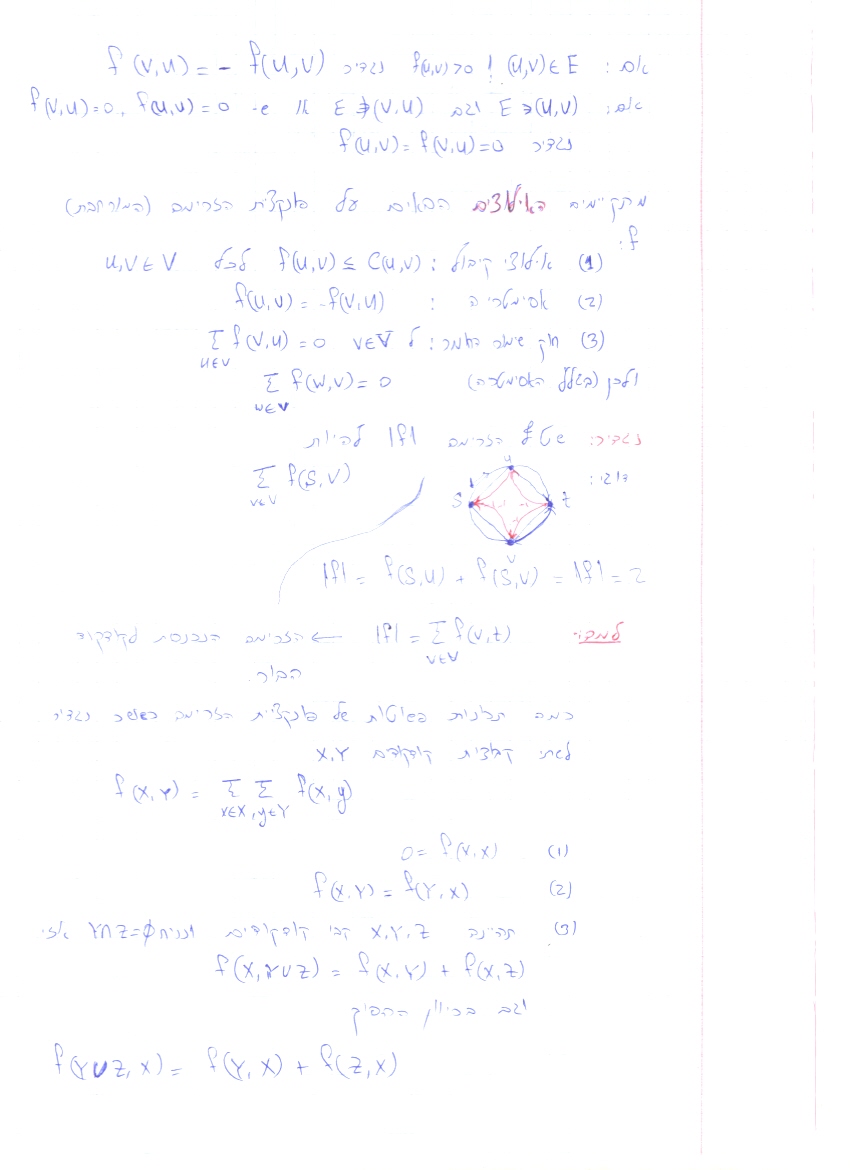 אם: (u,v)∈E ו f(u,v)>0 נגדיר f(v,u) = - f(u,v)
אם: (u,v)∈E וגם (v,u)∉E או ש- f(u,v)=0, f(v,u)=0
נגדיר f(u,v)=f(v,u)=0
מתקיימים האילוצים הבאים על פונקצית הזרימה (המורחבת)
f:
(1) אילוצי קיבול: f(u,v) ≤ C(u,v) לכל u,v∈V
(2) אסימטריה: f(u,v) = -f(v,u)
(3) חוק שימור החומר: ל v∈V Σ f(v,u) = 0
u∈V
ולכן (בגלל האסימטריה) Σ f(w,v) = 0
w∈V
נגדיר: שטף הזרימה |f| להיות
Σ f(s,v)
v∈V
u
s t
v
|f| = f(s,u) + f(s,v) = |f| = 2
למה: |f| = Σ f(v,t) ← הזרימה הנכנסת לקודקוד
v∈V
הבור.
כמה תכונות פשוטות של פונקצית הזרימה כאשר נגדיר
לאתי קבוצית קודקודים X,Y
f(X,Y) = Σ Σ f(x,y)
x∈X, y∈Y
(1) 0 = f(X,X)
(2) f(X,Y) = f(Y,X)
(3) תהיינה X,Y,Z קבו קודקודים ונניח Y∩Z=ϕ אזי
f(X,Y∪Z) = f(X,Y) + f(X,Z)
וגם בכיוון ההפוך
f(Y∪Z,X) = f(Y,X) + f(Z,X)